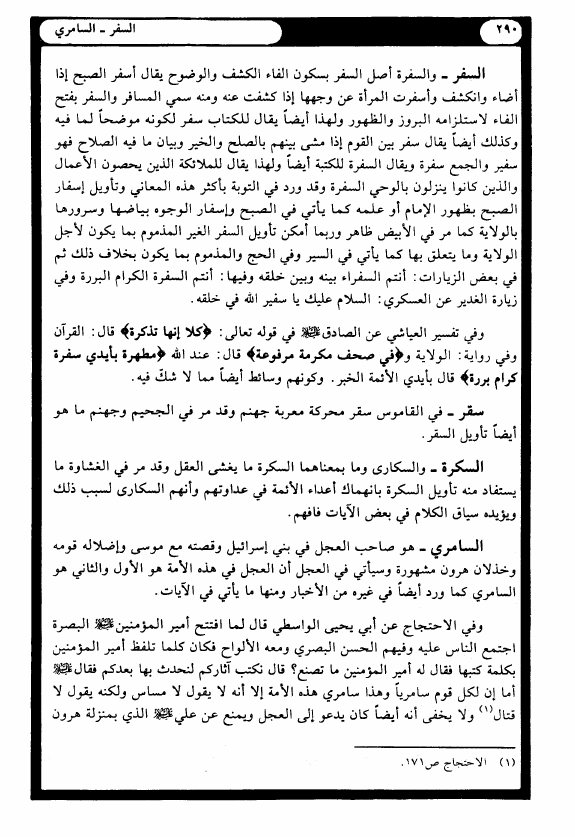 السفر ــ السامري
٢٩٠
السفر ــ والسفرة أصل السفر بسكون الفاء الكشف والوضوح يقال أسفر الصبح إذا
أضاء وانكشف وأسفرت المرأة عن وجهها إذا كشفت عنه ومنه سمي المسافر والسفر بفتح
الفاء لاستلزامه البروز والظهور ولهذا أيضاً يقال للكتاب سفر لكونه موضحاً لما فيه
وكذلك أيضاً يقال سفر بين القوم إذا مشى بينهم بالصلح والخير وبيان ما فيه الصلاح فهو
سفير والجمع سفرة ويقال السفرة للكتبة أيضاً ولهذا يقال للملائكة الذين يحصون الأعمال
والذين كانوا ينزلون بالوحي السفرة وقد ورد في التوبة بأكثر هذه المعاني وتأويل إسفار
الصبح بظهور الإمام أو علمه كما يأتي في الصبح وإسفار الوجوه بياضها وسرورها
بالولاية كما مر في الأبيض ظاهر وربما أمكن تأويل السفر الغير المذموم بما يكون لأجل
الولاية وما يتعلق بها كما يأتي في السير وفي الحج والمذموم بما يكون بخلاف ذلك ثم
في بعض الزيارات: أنتم السفراء بينه وبين خلقه وفيها: أنتم السفرة الكرام البررة وفي
زيارة الغدير عن العسكري: السلام عليك يا سفير الله في خلقه.
وفي تفسير العياشي عن الصادق عليه السلام في قوله تعالى: ﴿كلا إنها تذكرة﴾ قال: القرآن
وفي رواية: الولاية و﴿في صحف مكرمة مرفوعة﴾ قال: عند الله ﴿مطهرة بأيدي سفرة
كرام بررة﴾ قال بأيدي الأئمة الخبر. وكونهم وسائط أيضاً مما لا شكّ فيه.
سقر ــ في القاموس سقر محركة معربة جهنم وقد مر في الجحيم وجهنم ما هو
أيضاً تأويل السقر.
السكرة ــ والسكارى وما بمعناهما السكرة ما يغشى العقل وقد مر في الغشاوة ما
يستفاد منه تأويل السكرة بانهماك أعداء الأئمة في عداوتهم وأنهم السكارى لسبب ذلك
ويؤيده سياق الكلام في بعض الآيات فافهم.
السامري ــ هو صاحب العجل في بني إسرائيل وقصته مع موسى وإضلاله قومه
وخذلان هرون مشهورة وسيأتي في العجل أن العجل في هذه الأمة هو الأول والثاني هو
السامري كما ورد أيضاً في غيره من الأخبار ومنها ما يأتي في الآيات.
وفي الاحتجاج عن أبي يحيى الواسطي قال لما افتتح أمير المؤمنين عليه السلام البصرة
اجتمع الناس عليه وفيهم الحسن البصري ومعه الألواح فكان كلما تلفظ أمير المؤمنين
بكلمة كتبها فقال له أمير المؤمنين ما تصنع؟ قال نكتب آثاركم لنحدث بها بعدكم فقال عليه السلام
أما إن لكل قوم سامرياً وهذا سامري هذه الأمة إلا أنه لا يقول لا مساس ولكنه يقول لا
قتال(١) ولا يخفى أنه أيضاً كان يدعو إلى العجل ويمنع عن علي عليه السلام الذي بمنزلة هرون
(١) الاحتجاج ص١٧١.